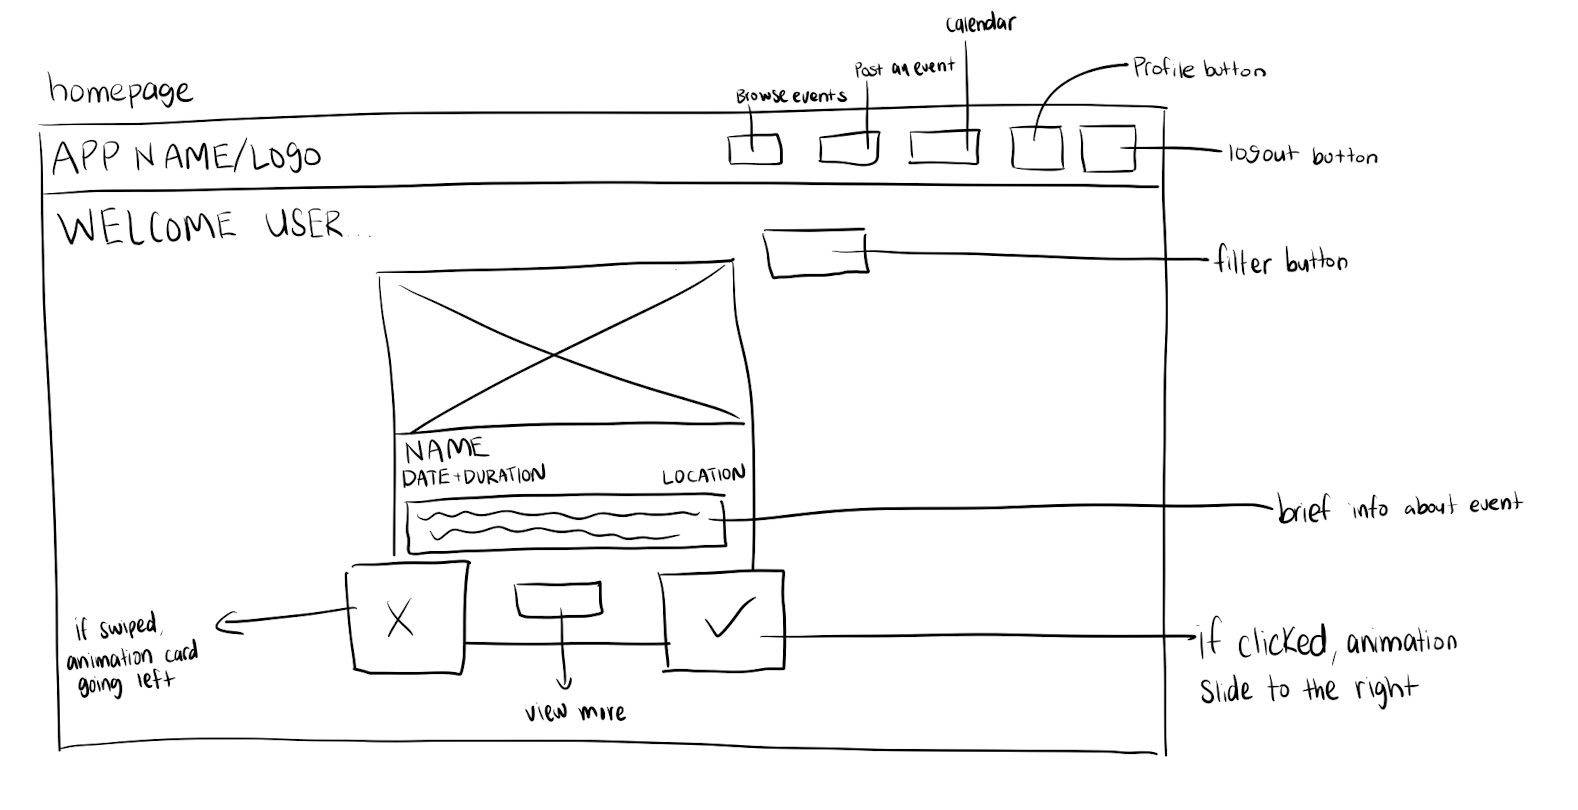 Calendar
Post an event
Profile button
homepage
Browse events
APP NAME/Logo
logout button
WELCOME USER...
filter button
NAME
DATE+DURATION
LOCATION
brief info about event
X
if swiped,
animation card
going left
if clicked, animation
slide to the right
view more